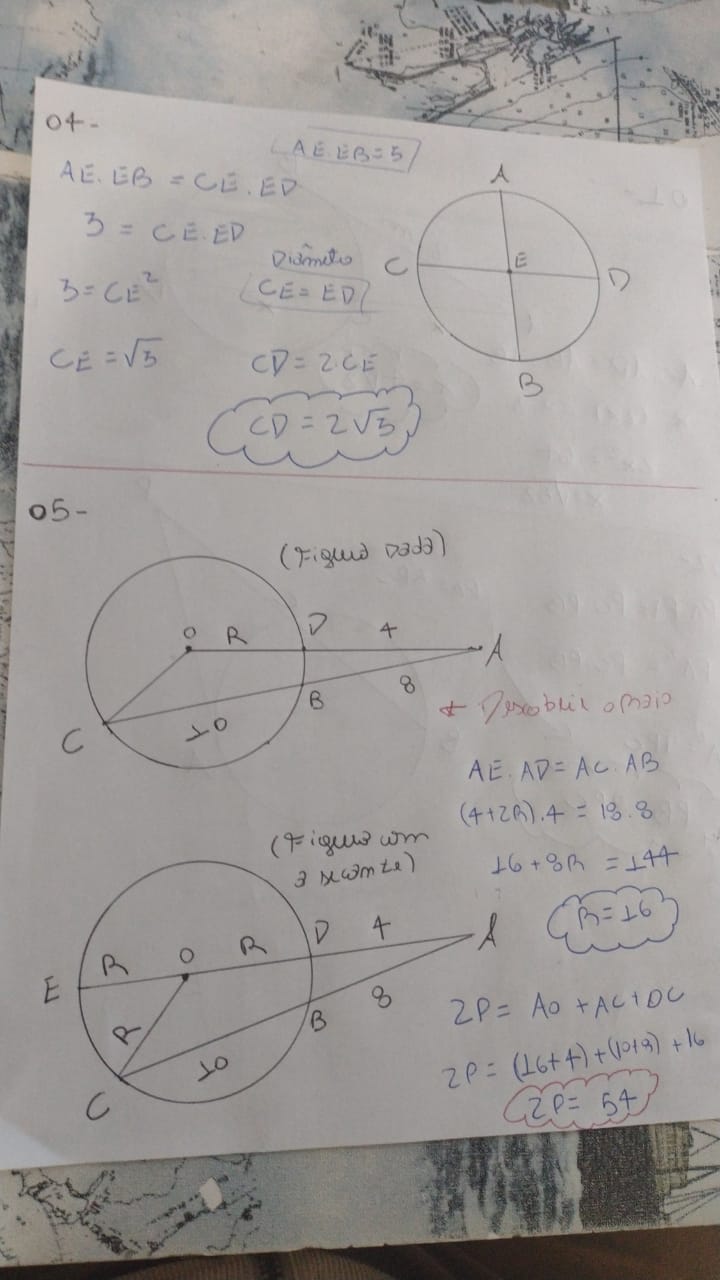 04-
AE.EB=5
AE.EB = CE.ED
3 = CE.ED
Diâmetro
3=CE²
CE=ED
CE=√3
CD=2.CE
CD=2√3
A
C
E
D
B
05-
(Figura Dada)
O R D 4 A
B 8
C 10
* Descobrir o raio
AE.AD=AC.AB
(4+2R).4=18.8
16+8R=144
R=16
(Figura com
a secante)
E R O R D 4 A
R B 8
C 10
2P= AO+AC+OC
2P= (16+4)+(10+8)+16
2P= 54